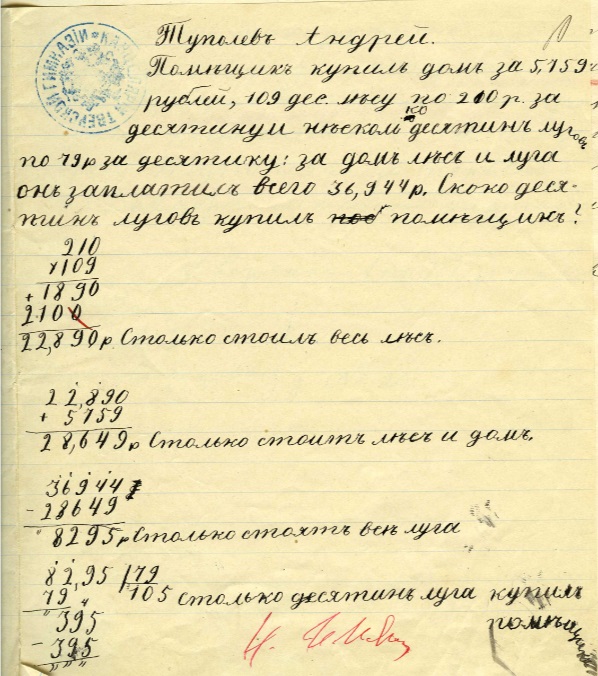 КАНЦЕЛЯРІЯ ТВЕРСКОЙ ГИМНАЗІИ
Туполевъ Андрей.
Помѣщикъ купилъ домъ за 5,759
рублей, 109 дес. лѣсу по 210 р. за
десятину и нѣсколко десятинъ луговъ
по 79 р за десятину: за домъ лѣсъ и луга
онъ заплатилъ всего 36,944 р. Скоко деся-
тинъ луговъ купилъ помѣщикъ?
210
× 109
+ 1890
2100
22,890 р Столько стоилъ весь лѣсъ.
22,890
+ 5759
28,649 р Столько стоитъ лѣсъ и домъ.
36944
- 28649
8295 р Столько стоятъ всѣ луга
82,95 | 79
79 105 столько десятинъ луга купилъ
395 помѣщикъ
- 395